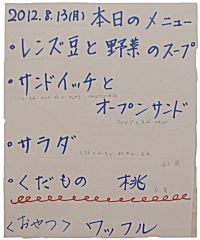 2012.8.13(月) 本日のメニュー
・レンズ豆と野菜のスープ
・サンドイッチと
オープンサンド
・サラダ
・くだもの 桃
<おやつ> ワッフル